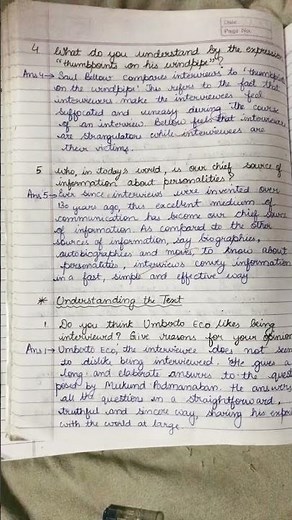 Date
Page No.
4 What do you understand by the expression
"thumbprints on his windpipe"?
Ans 4→ Saul Bellow compares interviews to 'thumbprints
on the windpipe' This refers to the fact that
interviewers make the interviewees feel
suffocated and uneasy during the course
of an interview. Bellow feels that interviewers
are strangulators while interviewees are
their victims.
5 Who, in today's world, is our chief source of
information about personalities?
Ans 5→ Ever since interviews were invented over
130 years ago, this excellent medium of
communication has become our chief source
of information. As compared to the other
sources of information, say biographies,
autobiographies and more, to know about
personalities, interviews convey information
in a fast, simple and effective way
* Understanding the Text
1 Do you think Umberto Eco likes being
interviewed? Give reasons for your opinion
Ans 1→ Umberto Eco, the interviewee does not seem
to dislike being interviewed. He gives
long and elaborate answers to the
posed by Mukund Padmanabhan. He answers
all the question in a straightforward,
truthful and sincere way, sharing his
with the world at large.